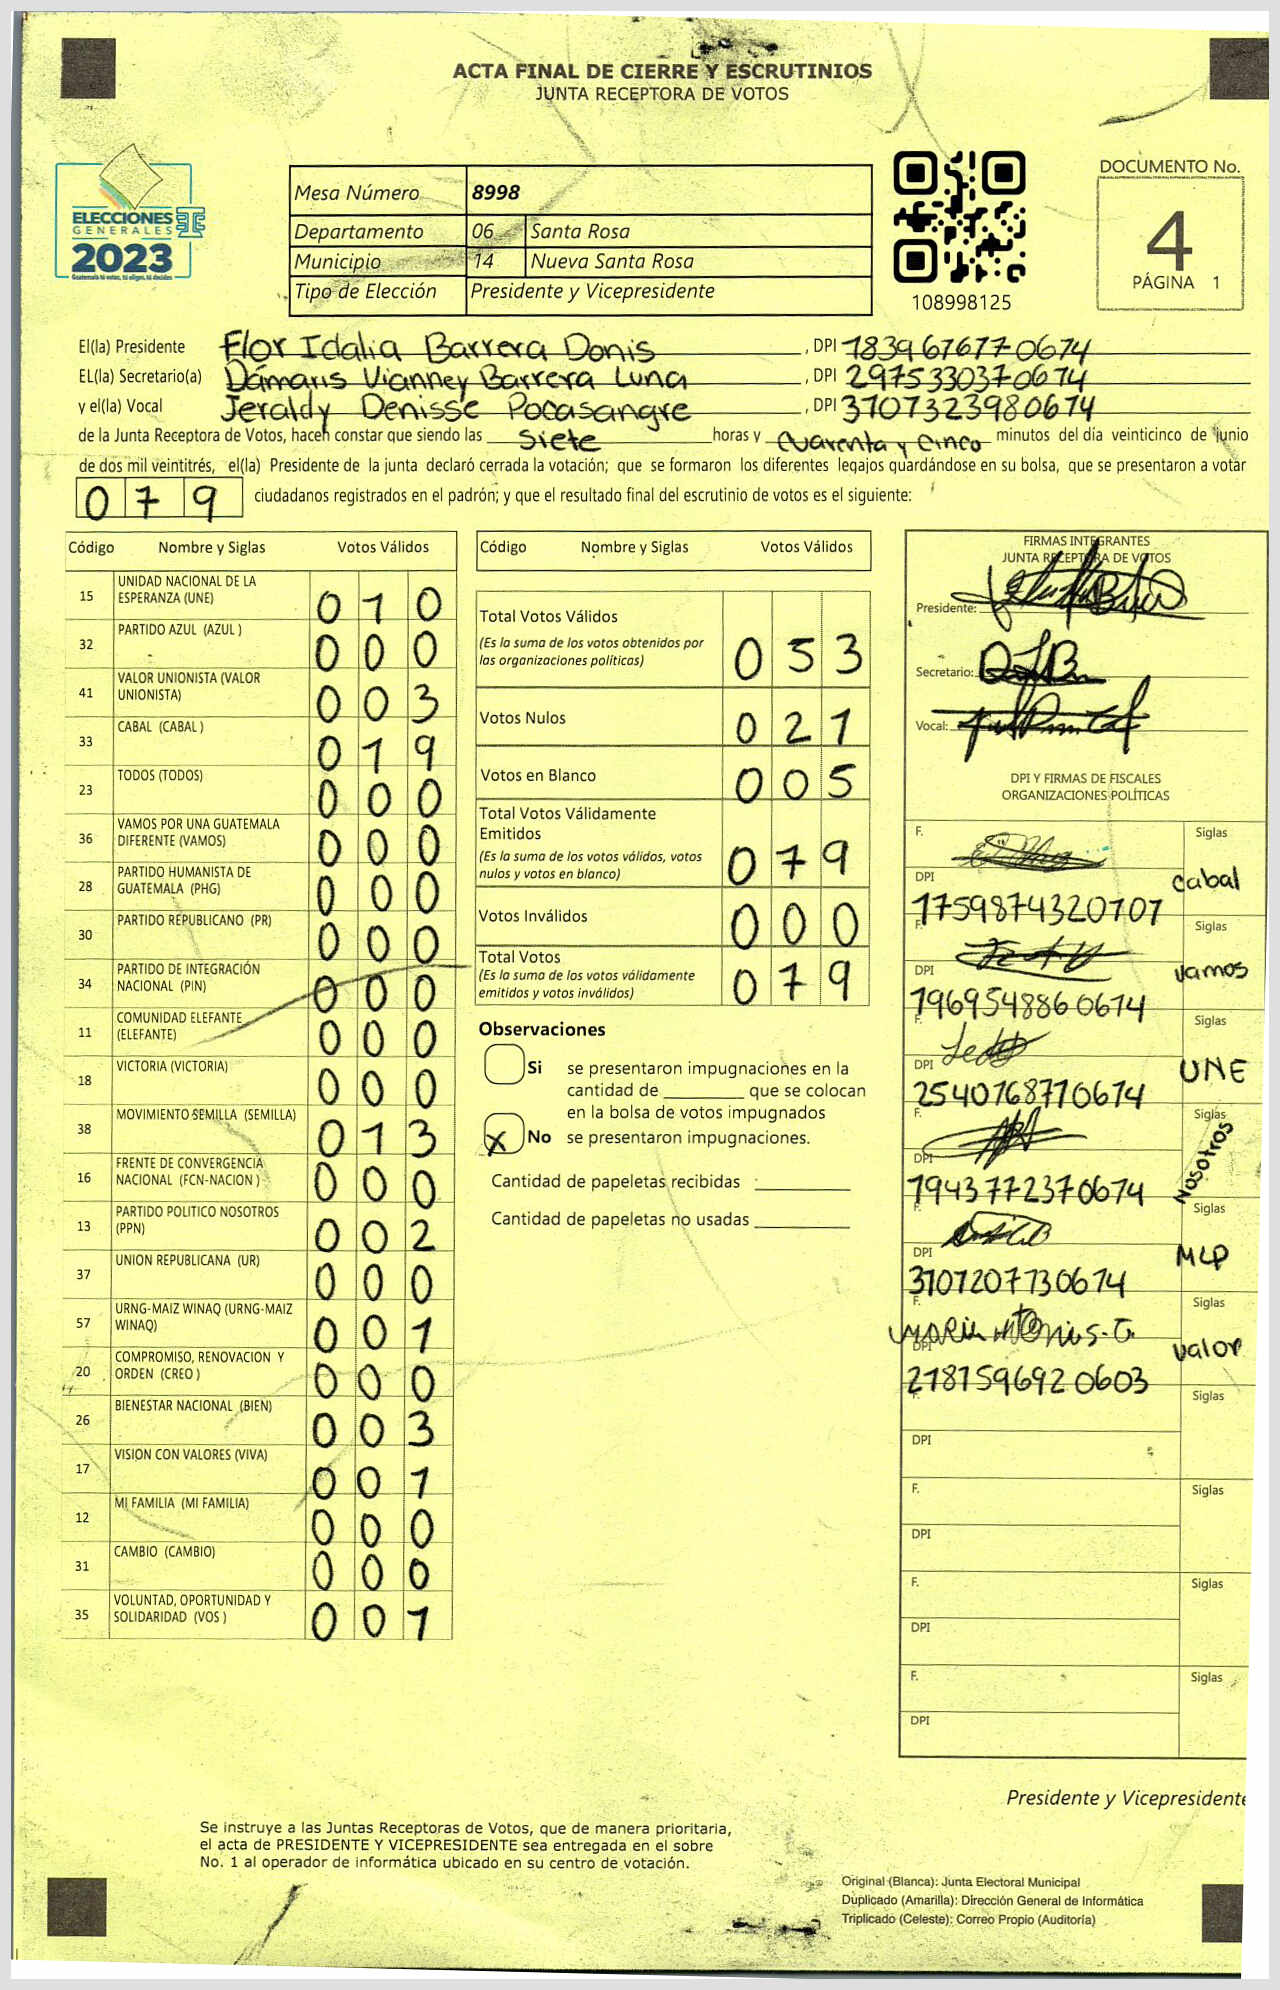 ACTA FINAL DE CIERRE Y ESCRUTINIOS
JUNTA RECEPTORA DE VOTOS
ELECCIONES
GENERALES
2023
Guatemala tú votas, tú eliges, tú decides
Mesa Número 8998
Departamento 06 Santa Rosa
Municipio 14 Nueva Santa Rosa
Tipo de Elección Presidente y Vicepresidente
108998125
DOCUMENTO No.
4
PÁGINA 1
El(la) Presidente Flor Idalia Barrera Donis , DPI 1839676770674
EL(la) Secretario(a) Dámaris Vianney Barrera Luna , DPI 2975330370674
y el(la) Vocal Jeraldy Denisse Pocasangre , DPI 3107323980674
de la Junta Receptora de Votos, hacen constar que siendo las Siete horas y Cuarenta y Cinco minutos del día veinticinco de junio
de dos mil veintitrés, el(la) Presidente de la junta declaró cerrada la votación; que se formaron los diferentes legajos guardándose en su bolsa, que se presentaron a votar
079 ciudadanos registrados en el padrón; y que el resultado final del escrutinio de votos es el siguiente:
Código Nombre y Siglas Votos Válidos
15 UNIDAD NACIONAL DE LA
ESPERANZA (UNE) 010
32 PARTIDO AZUL (AZUL ) 000
41 VALOR UNIONISTA (VALOR
UNIONISTA) 003
33 CABAL (CABAL ) 019
23 TODOS (TODOS) 000
36 VAMOS POR UNA GUATEMALA
DIFERENTE (VAMOS) 000
28 PARTIDO HUMANISTA DE
GUATEMALA (PHG) 000
30 PARTIDO REPUBLICANO (PR) 000
34 PARTIDO DE INTEGRACIÓN
NACIONAL (PIN) 000
11 COMUNIDAD ELEFANTE
(ELEFANTE) 000
18 VICTORIA (VICTORIA) 000
38 MOVIMIENTO SEMILLA (SEMILLA) 013
16 FRENTE DE CONVERGENCIA
NACIONAL (FCN-NACION ) 000
13 PARTIDO POLITICO NOSOTROS
(PPN) 002
37 UNION REPUBLICANA (UR) 000
57 URNG-MAIZ WINAQ (URNG-MAIZ
WINAQ) 001
20 COMPROMISO, RENOVACION Y
ORDEN (CREO ) 000
26 BIENESTAR NACIONAL (BIEN) 003
17 VISION CON VALORES (VIVA) 001
12 MI FAMILIA (MI FAMILIA) 000
31 CAMBIO (CAMBIO) 000
35 VOLUNTAD, OPORTUNIDAD Y
SOLIDARIDAD (VOS ) 001
Código Nombre y Siglas Votos Válidos
Total Votos Válidos
(Es la suma de los votos obtenidos por
las organizaciones políticas) 053
Votos Nulos 021
Votos en Blanco 005
Total Votos Válidamente
Emitidos
(Es la suma de los votos válidos, votos
nulos y votos en blanco) 079
Votos Inválidos 000
Total Votos
(Es la suma de los votos válidamente
emitidos y votos inválidos) 079
Observaciones
Si se presentaron impugnaciones en la
cantidad de ________ que se colocan
en la bolsa de votos impugnados
X No se presentaron impugnaciones.
Cantidad de papeletas recibidas
Cantidad de papeletas no usadas
FIRMAS INTEGRANTES
JUNTA RECEPTORA DE VOTOS
Presidente:
Secretario:
Vocal:
DPI Y FIRMAS DE FISCALES
ORGANIZACIONES POLÍTICAS
F. Siglas
DPI Cabal
1759874320707
F. Siglas
DPI Vamos
1969548860674
F. Siglas
DPI UNE
2540768770674
F. Siglas
DPI Nosotros
1943772370674
F. Siglas
DPI MLP
3107207730674
F. Siglas
DPI Valor
2181596920603
F. Siglas
DPI
F. Siglas
DPI
F. Siglas
DPI
F. Siglas
DPI
Presidente y Vicepresidente
Se instruye a las Juntas Receptoras de Votos, que de manera prioritaria,
el acta de PRESIDENTE Y VICEPRESIDENTE sea entregada en el sobre
No. 1 al operador de informática ubicado en su centro de votación.
Original (Blanca): Junta Electoral Municipal
Duplicado (Amarilla): Dirección General de Informática
Triplicado (Celeste): Correo Propio (Auditoría)